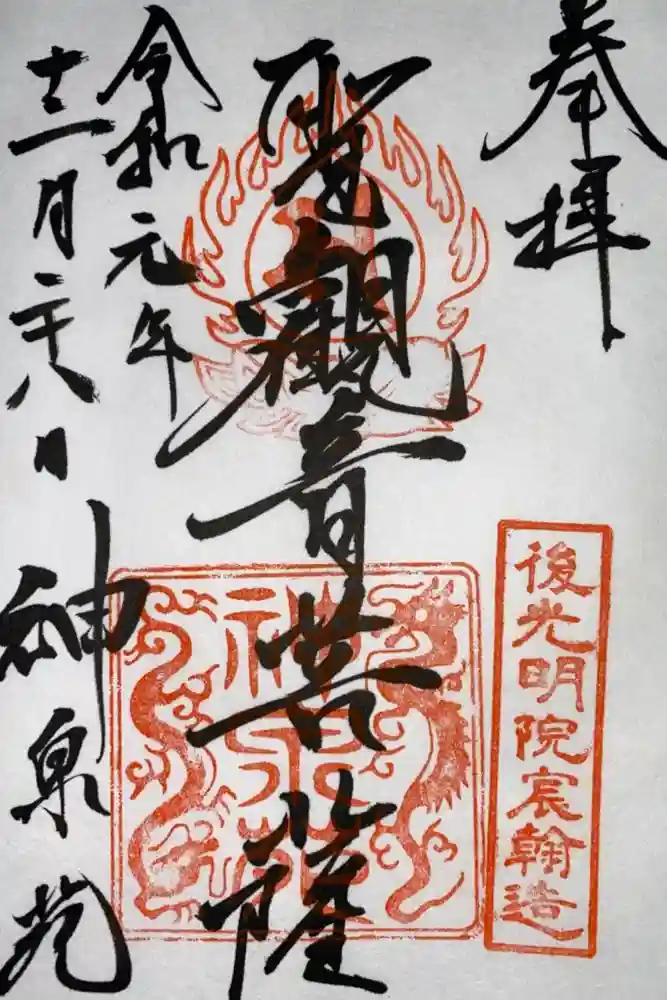 奉拝
後光明院宸翰造
聖觀音菩薩
神泉苑
令和元年
十二月二十八日
神泉苑